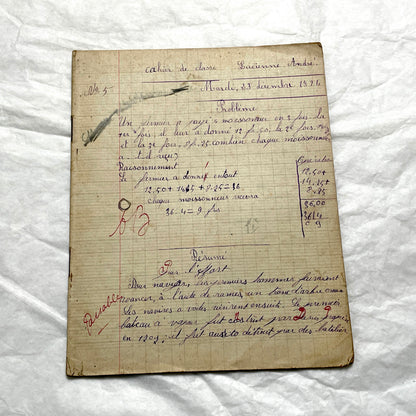 Cahier de classe Lucienne André
No 5 Mardi, 23 décembre 1924
Problème
Un fermier a payé 4 moissonneurs en 3 fois la
1ere fois il leur a donné 12 f,50; la 2e fois,
et la 3e fois, 9f,25 combien chaque moissonneur
a-t-il reçu?
Raisonnement
Opérations
Le fermier a donné en tout
12,50+14,25+9,25=36
chaque moissonneur recevra
36:4=9 frs
12,50+
14,25+
9,25
36,00
36 4
0 9
AB
Résumé
Par l'effort
Passable
Pour naviguer, les premiers hommes
à l'aide de rames, un tronc d'arbre
Les navires à voiles vinrent ensuite. Le premier
bateau à vapeur fut construit par Denis Papin
en 1707; il fut aussitôt détruit par des bateliers